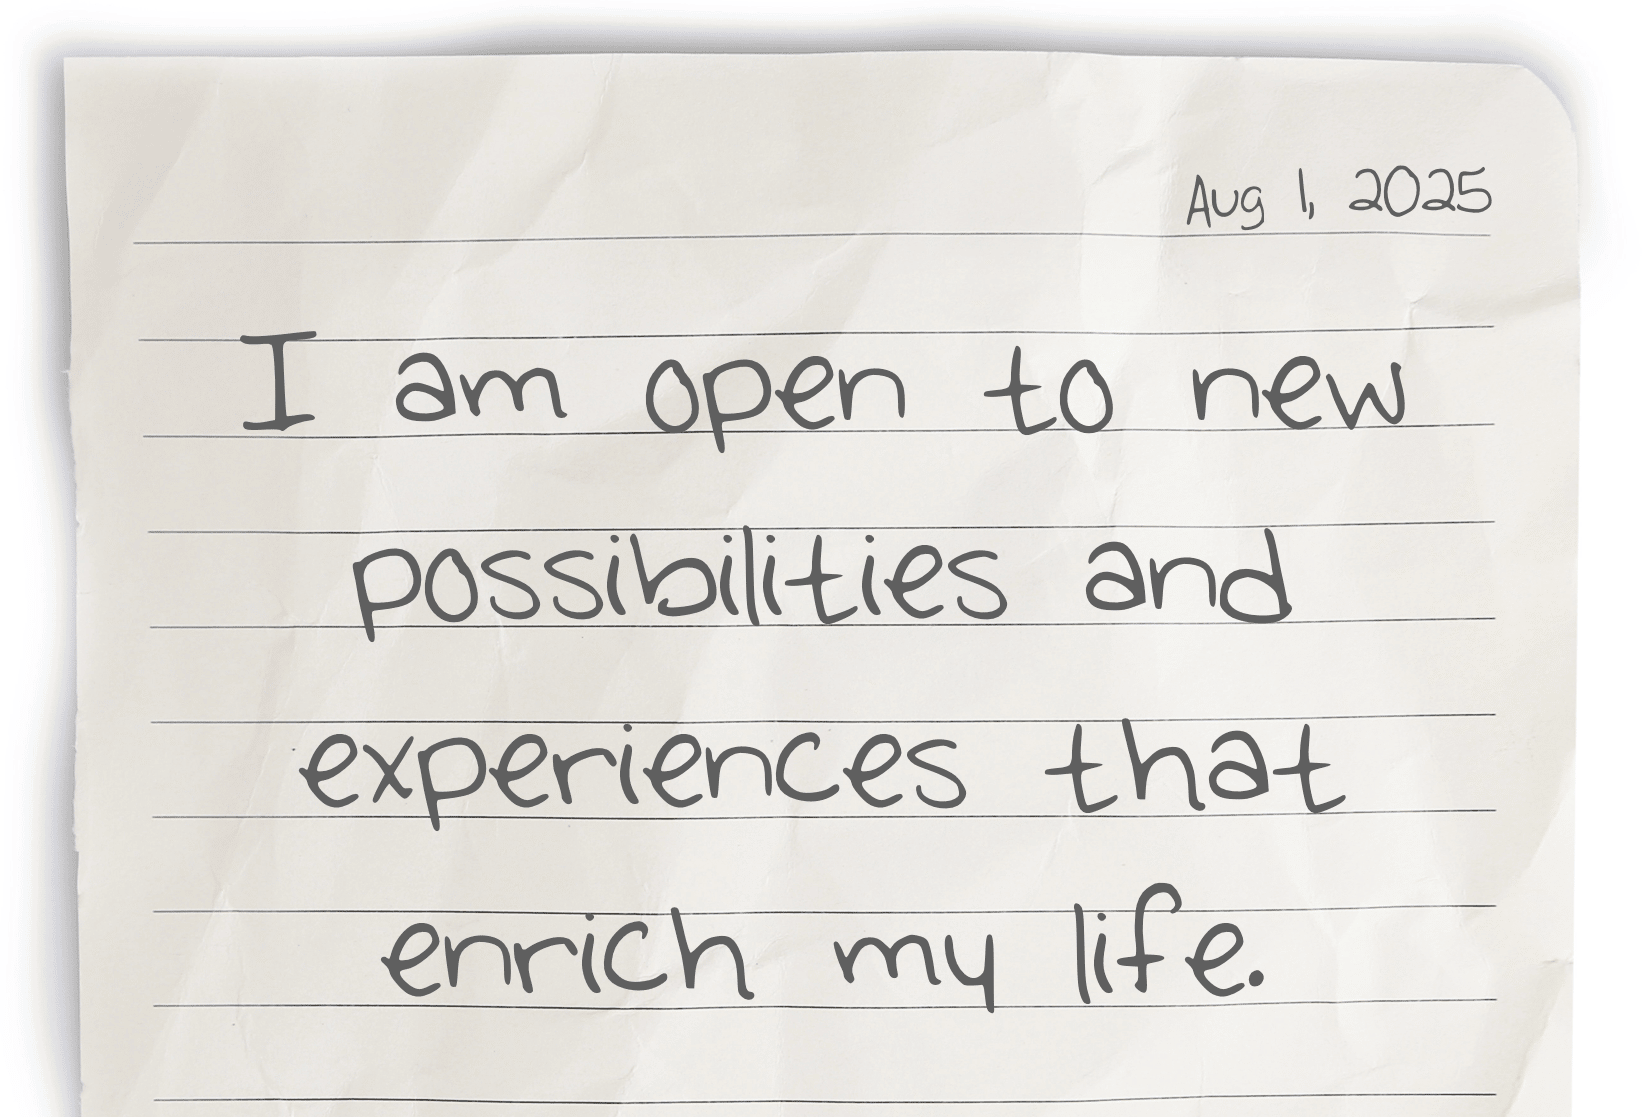 Aug 1, 2025
I am open to new
possibilities and
experiences that
enrich my life.